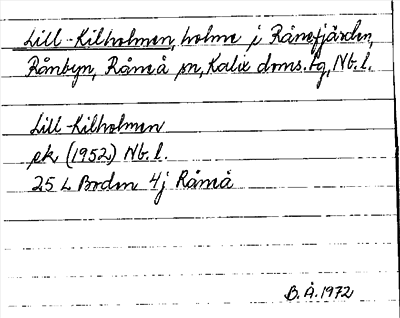 Lill-Kilholmen, holme i Rånefjärden,
Rånbyn, Råneå sn, Kalix doms.tg, Nb.l.
Lill-Kilholmen
ek (1952) Nb.l.
25 L Boden 4j Råneå
B.Å.1972